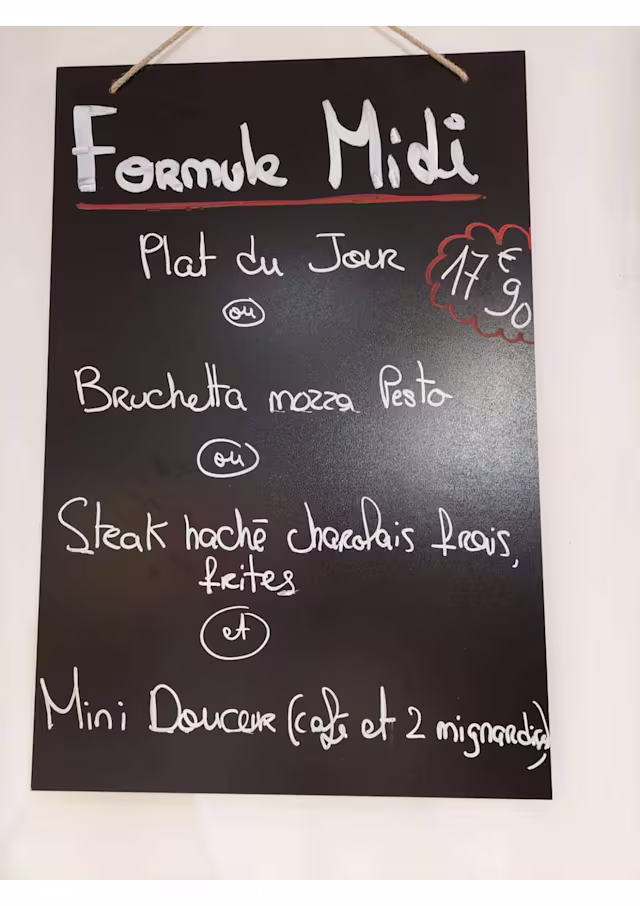 Formule Midi
Plat du Jour
17€90
ou
Bruchetta mozza Pesto
ou
Steak haché charolais frais,
frites
et
Mini Douceur (café et 2 mignardises)